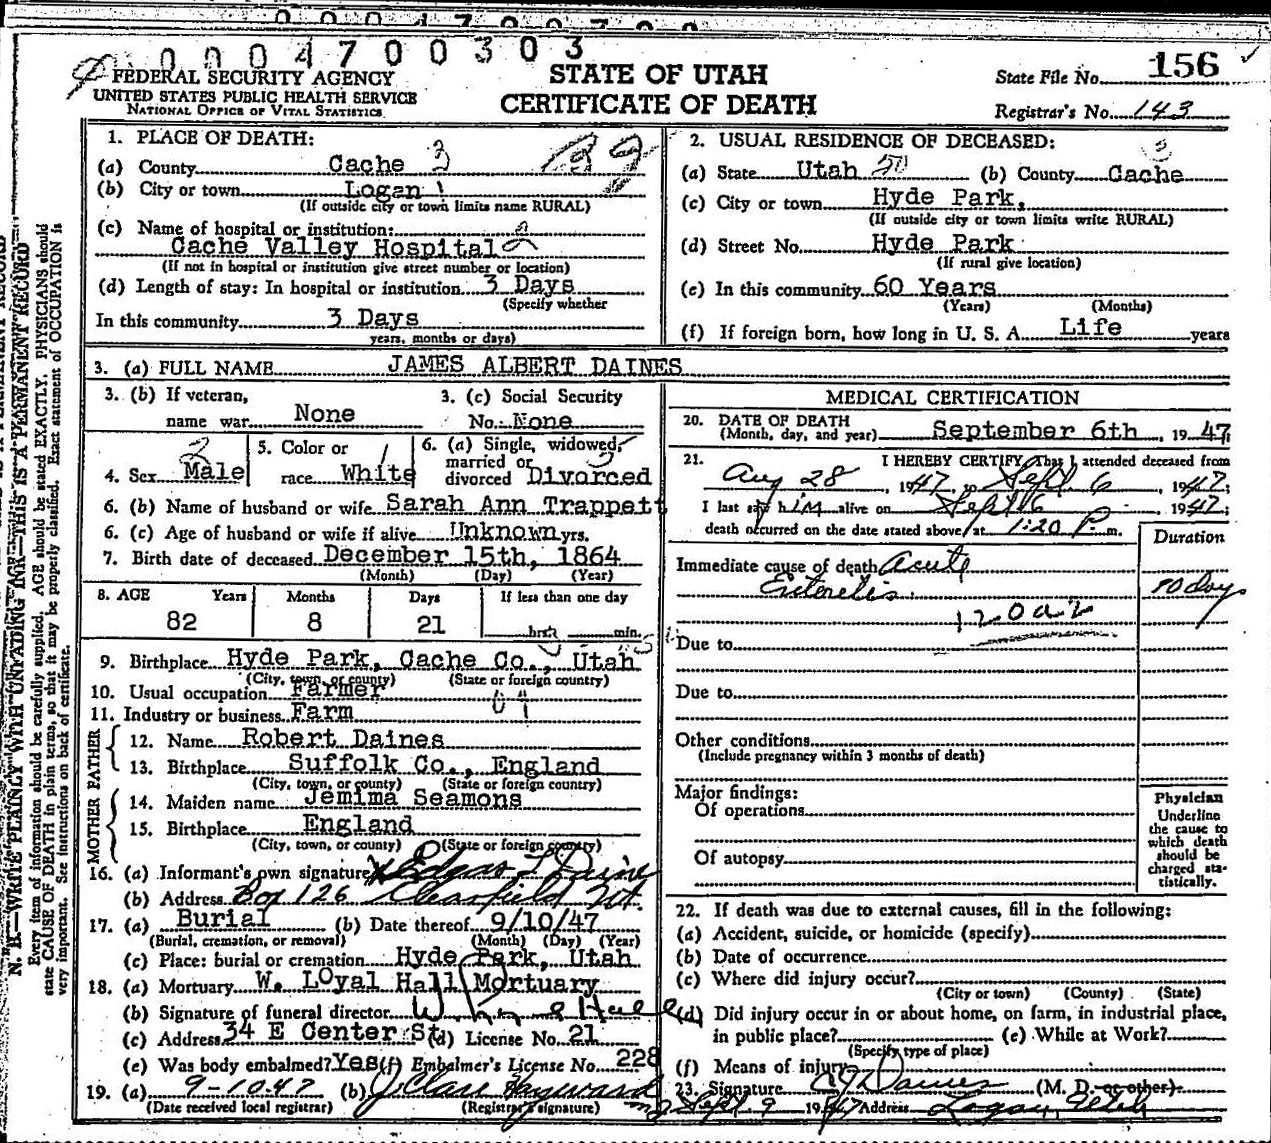 0004700303
FEDERAL SECURITY AGENCY
UNITED STATES PUBLIC HEALTH SERVICE
NATIONAL OFFICE OF VITAL STATISTICS
STATE OF UTAH
CERTIFICATE OF DEATH
State File No. 156
Registrar's No. 143
1. PLACE OF DEATH:
(a) County Cache 3
(b) City or town Logan
(If outside city or town limits name RURAL)
(c) Name of hospital or institution:
Cache Valley Hospital
(If not in hospital or institution give street number or location)
(d) Length of stay: In hospital or institution 3 Days
(Specify whether
In this community 3 Days
years, months or days)
2. USUAL RESIDENCE OF DECEASED:
(a) State Utah (b) County Cache
(c) City or town Hyde Park,
(If outside city or town limits write RURAL)
(d) Street No. Hyde Park
(If rural give location)
(e) In this community 60 Years
(Years) (Months)
(f) If foreign born, how long in U. S. A. Life years
3. (a) FULL NAME JAMES ALBERT DAINES
3. (b) If veteran,
name war None
3. (c) Social Security
No. None
4. Sex Male
5. Color or
race White
6. (a) Single, widowed,
married or
divorced Divorced
6. (b) Name of husband or wife Sarah Ann Trappett
6. (c) Age of husband or wife if alive Unknown yrs.
7. Birth date of deceased December 15th, 1864
(Month) (Day) (Year)
8. AGE Years Months Days If less than one day
82 8 21 hrs. min.
9. Birthplace Hyde Park, Cache Co., Utah
(City, town, or county) (State or foreign country)
10. Usual occupation Farmer
11. Industry or business Farm
FATHER
12. Name Robert Daines
13. Birthplace Suffolk Co., England
(City, town, or county) (State or foreign country)
MOTHER
14. Maiden name Jemima Seamons
15. Birthplace England
(City, town, or county) (State or foreign country)
16. (a) Informant's own signature Edgar L Daines
(b) Address Box 126 Clearfield Ut.
17. (a) Burial (b) Date thereof 9/10/47
(Burial, cremation, or removal) (Month) (Day) (Year)
(c) Place: burial or cremation Hyde Park, Utah
18. (a) Mortuary W. Loyal Hall Mortuary
(b) Signature of funeral director W. Loyal Hall
(c) Address 34 E Center St. (d) License No. 21
(e) Was body embalmed? Yes (f) Embalmer's License No. 228
19. (a) 9-10-47 (b) J Clare Hayward
(Date received local registrar) (Registrar's signature)
MEDICAL CERTIFICATION
20. DATE OF DEATH
(Month, day, and year) September 6th, 1947;
21. I HEREBY CERTIFY, That I attended deceased from
Aug 28, 1947, to Sept. 6, 1947;
I last saw him alive on Sept 6, 1947;
death occurred on the date stated above, at 1:20 P. m.
Duration
Immediate cause of death Acute
Enteritis. 10 days
120a2
Due to
Due to
Other conditions
(Include pregnancy within 3 months of death)
Major findings:
Of operations
Of autopsy
Physician
Underline
the cause to
which death
should be
charged sta-
tistically.
22. If death was due to external causes, fill in the following:
(a) Accident, suicide, or homicide (specify)
(b) Date of occurrence
(c) Where did injury occur?
(City or town) (County) (State)
(d) Did injury occur in or about home, on farm, in industrial place,
in public place? (e) While at Work?
(Specify type of place)
(f) Means of injury
23. Signature Daines (M. D. or other)
Sept. 9 1947 Address Logan, Utah
N. B.—WRITE PLAINLY WITH UNFADING INK—THIS IS A PERMANENT RECORD
Every item of information should be carefully supplied. AGE should be stated EXACTLY. PHYSICIANS should
state CAUSE OF DEATH in plain terms, so that it may be properly classified. Exact statement of OCCUPATION is
very important. See instructions on back of certificate.